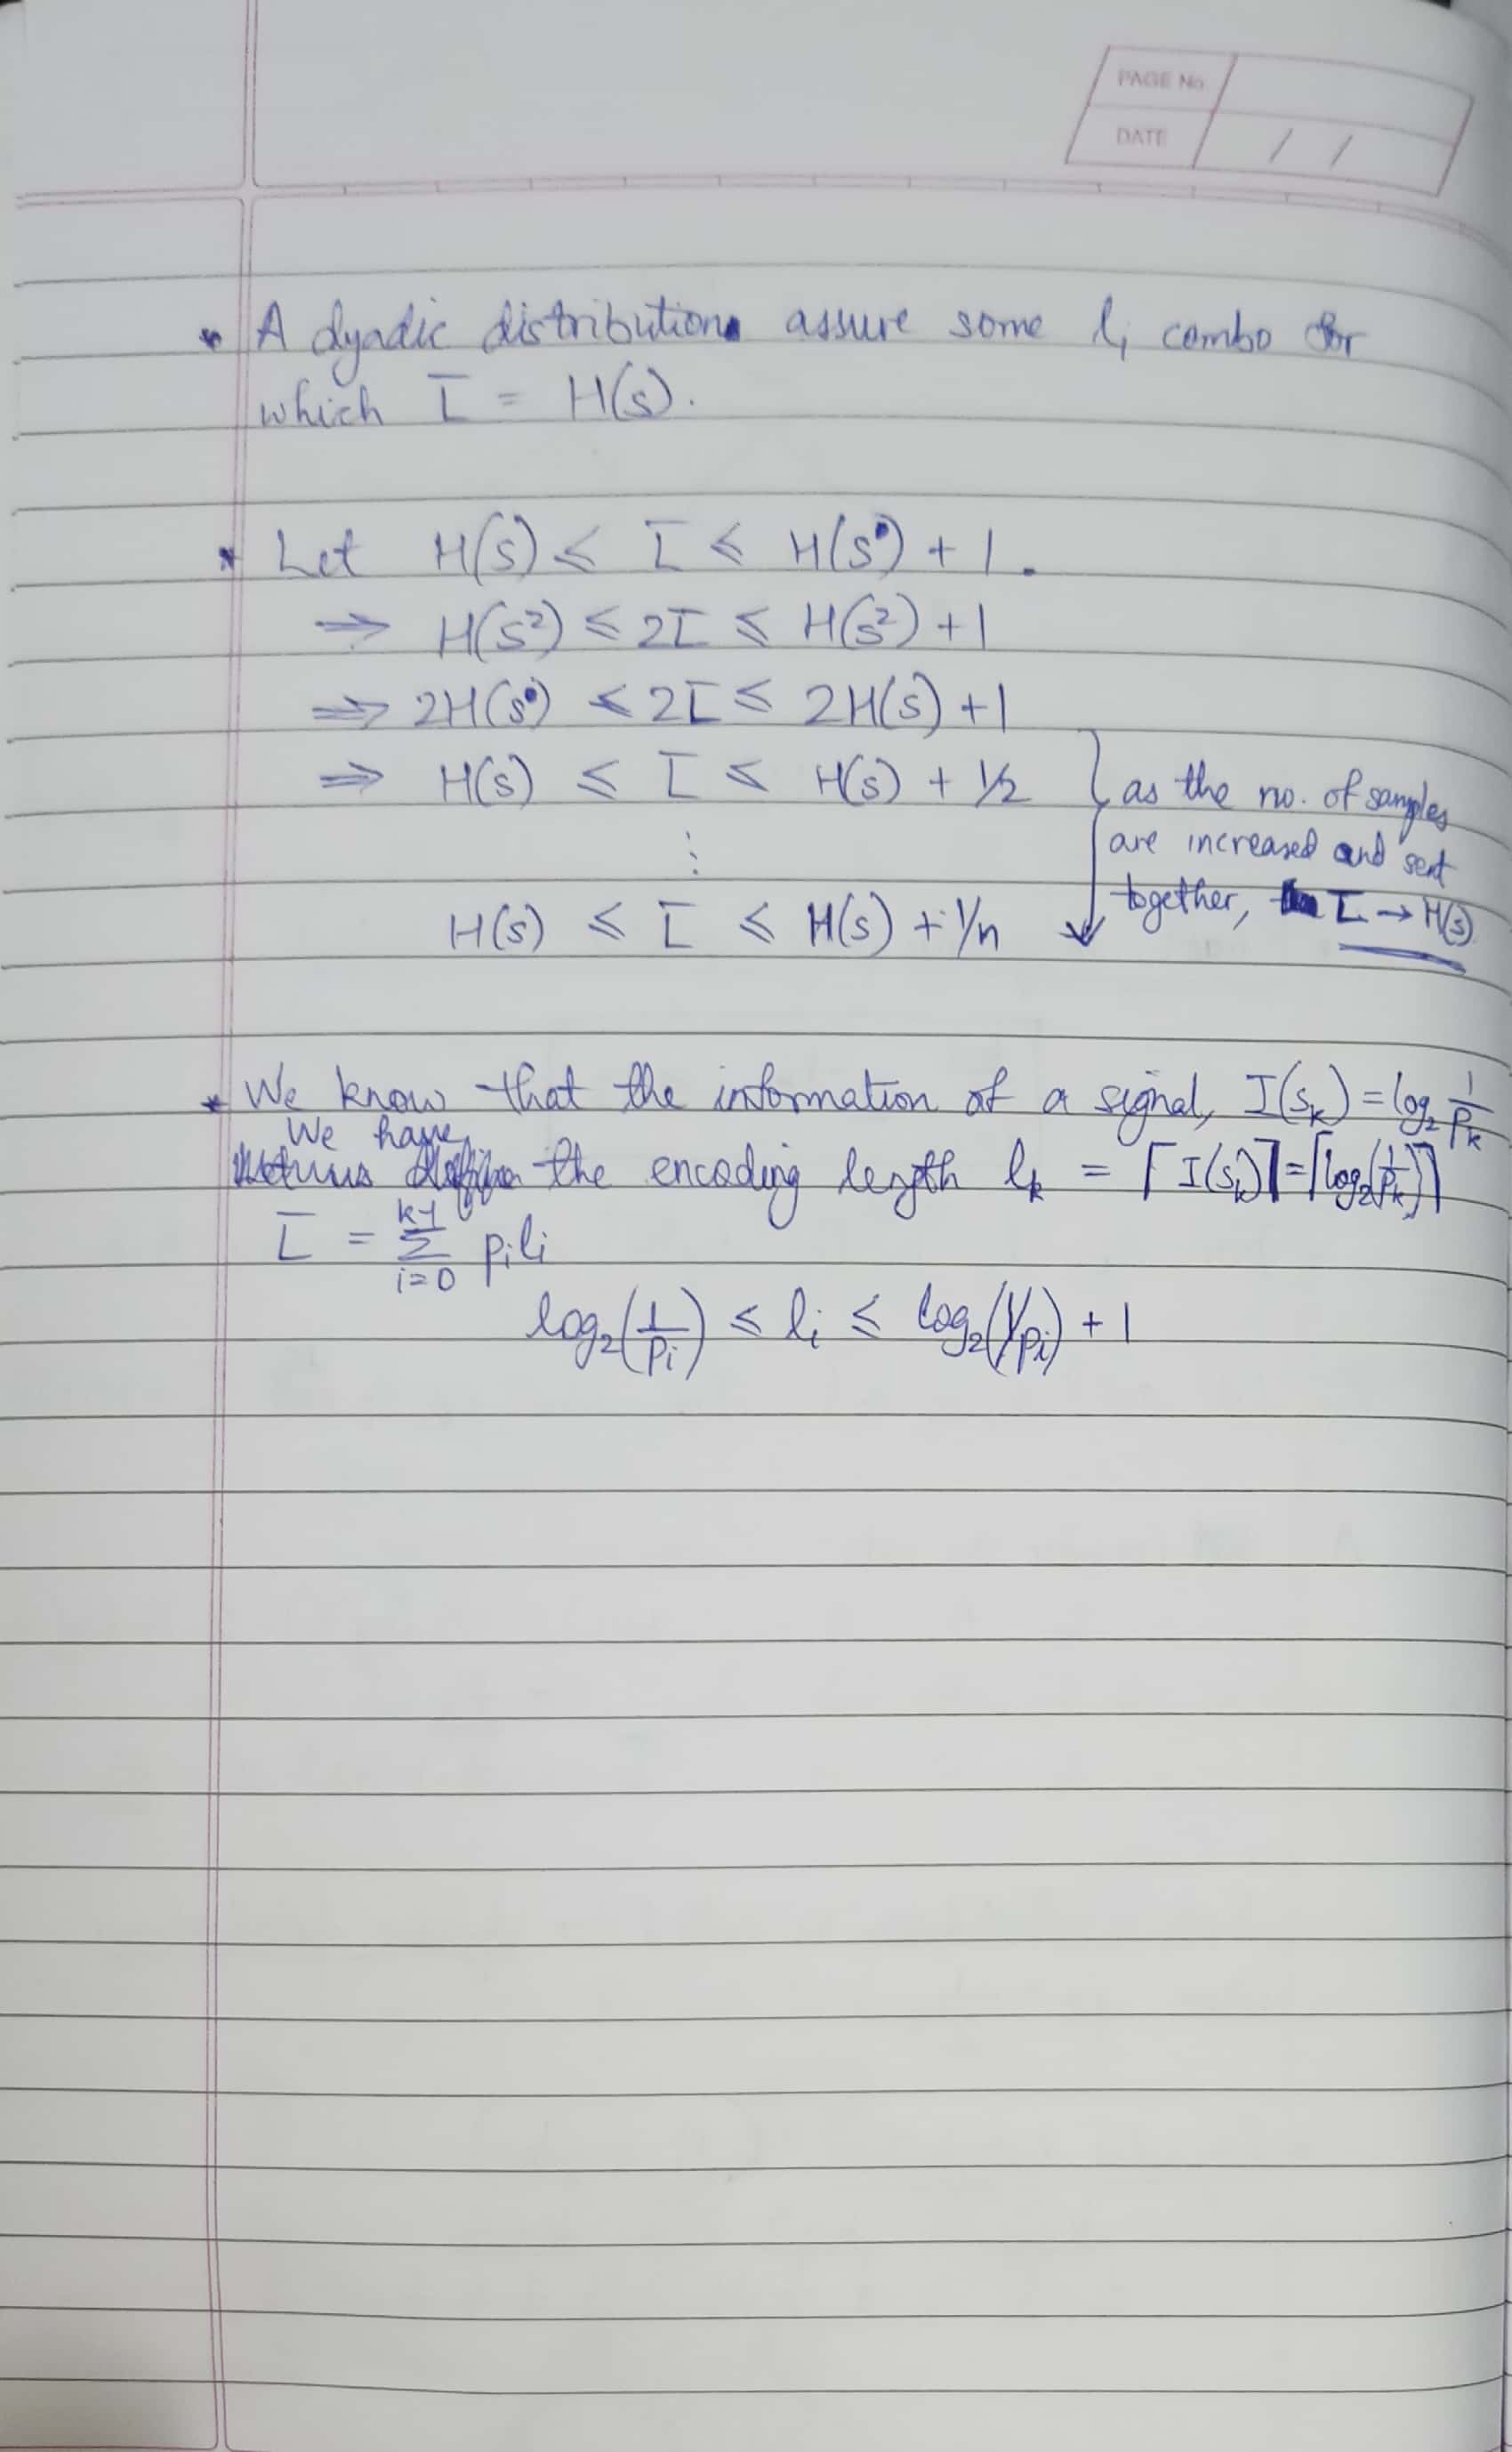 PAGE No
DATE / /
* A dyadic distribution assure some lᵢ combo for
which L̅ = H(s).
* Let H(s) ≤ L̅ ≤ H(s) + 1.
⇒ H(s²) ≤ 2L̅ ≤ H(s²) + 1
⇒ 2H(s) ≤ 2L̅ ≤ 2H(s) + 1
⇒ H(s) ≤ L̅ ≤ H(s) + 1/2
⋮
H(s) ≤ L̅ ≤ H(s) + 1/n
as the no. of samples
are increased and sent
together, L̅ → H(s)
* We know that the information of a signal, I(sₖ) = log₂ 1/pₖ
We have
the encoding length lₖ = ⌈I(sₖ)⌉ = ⌈log₂(1/pₖ)⌉
L̅ = Σ_{i=0}^{k-1} pᵢlᵢ
log₂(1/pᵢ) ≤ lᵢ ≤ log₂(1/pᵢ) + 1